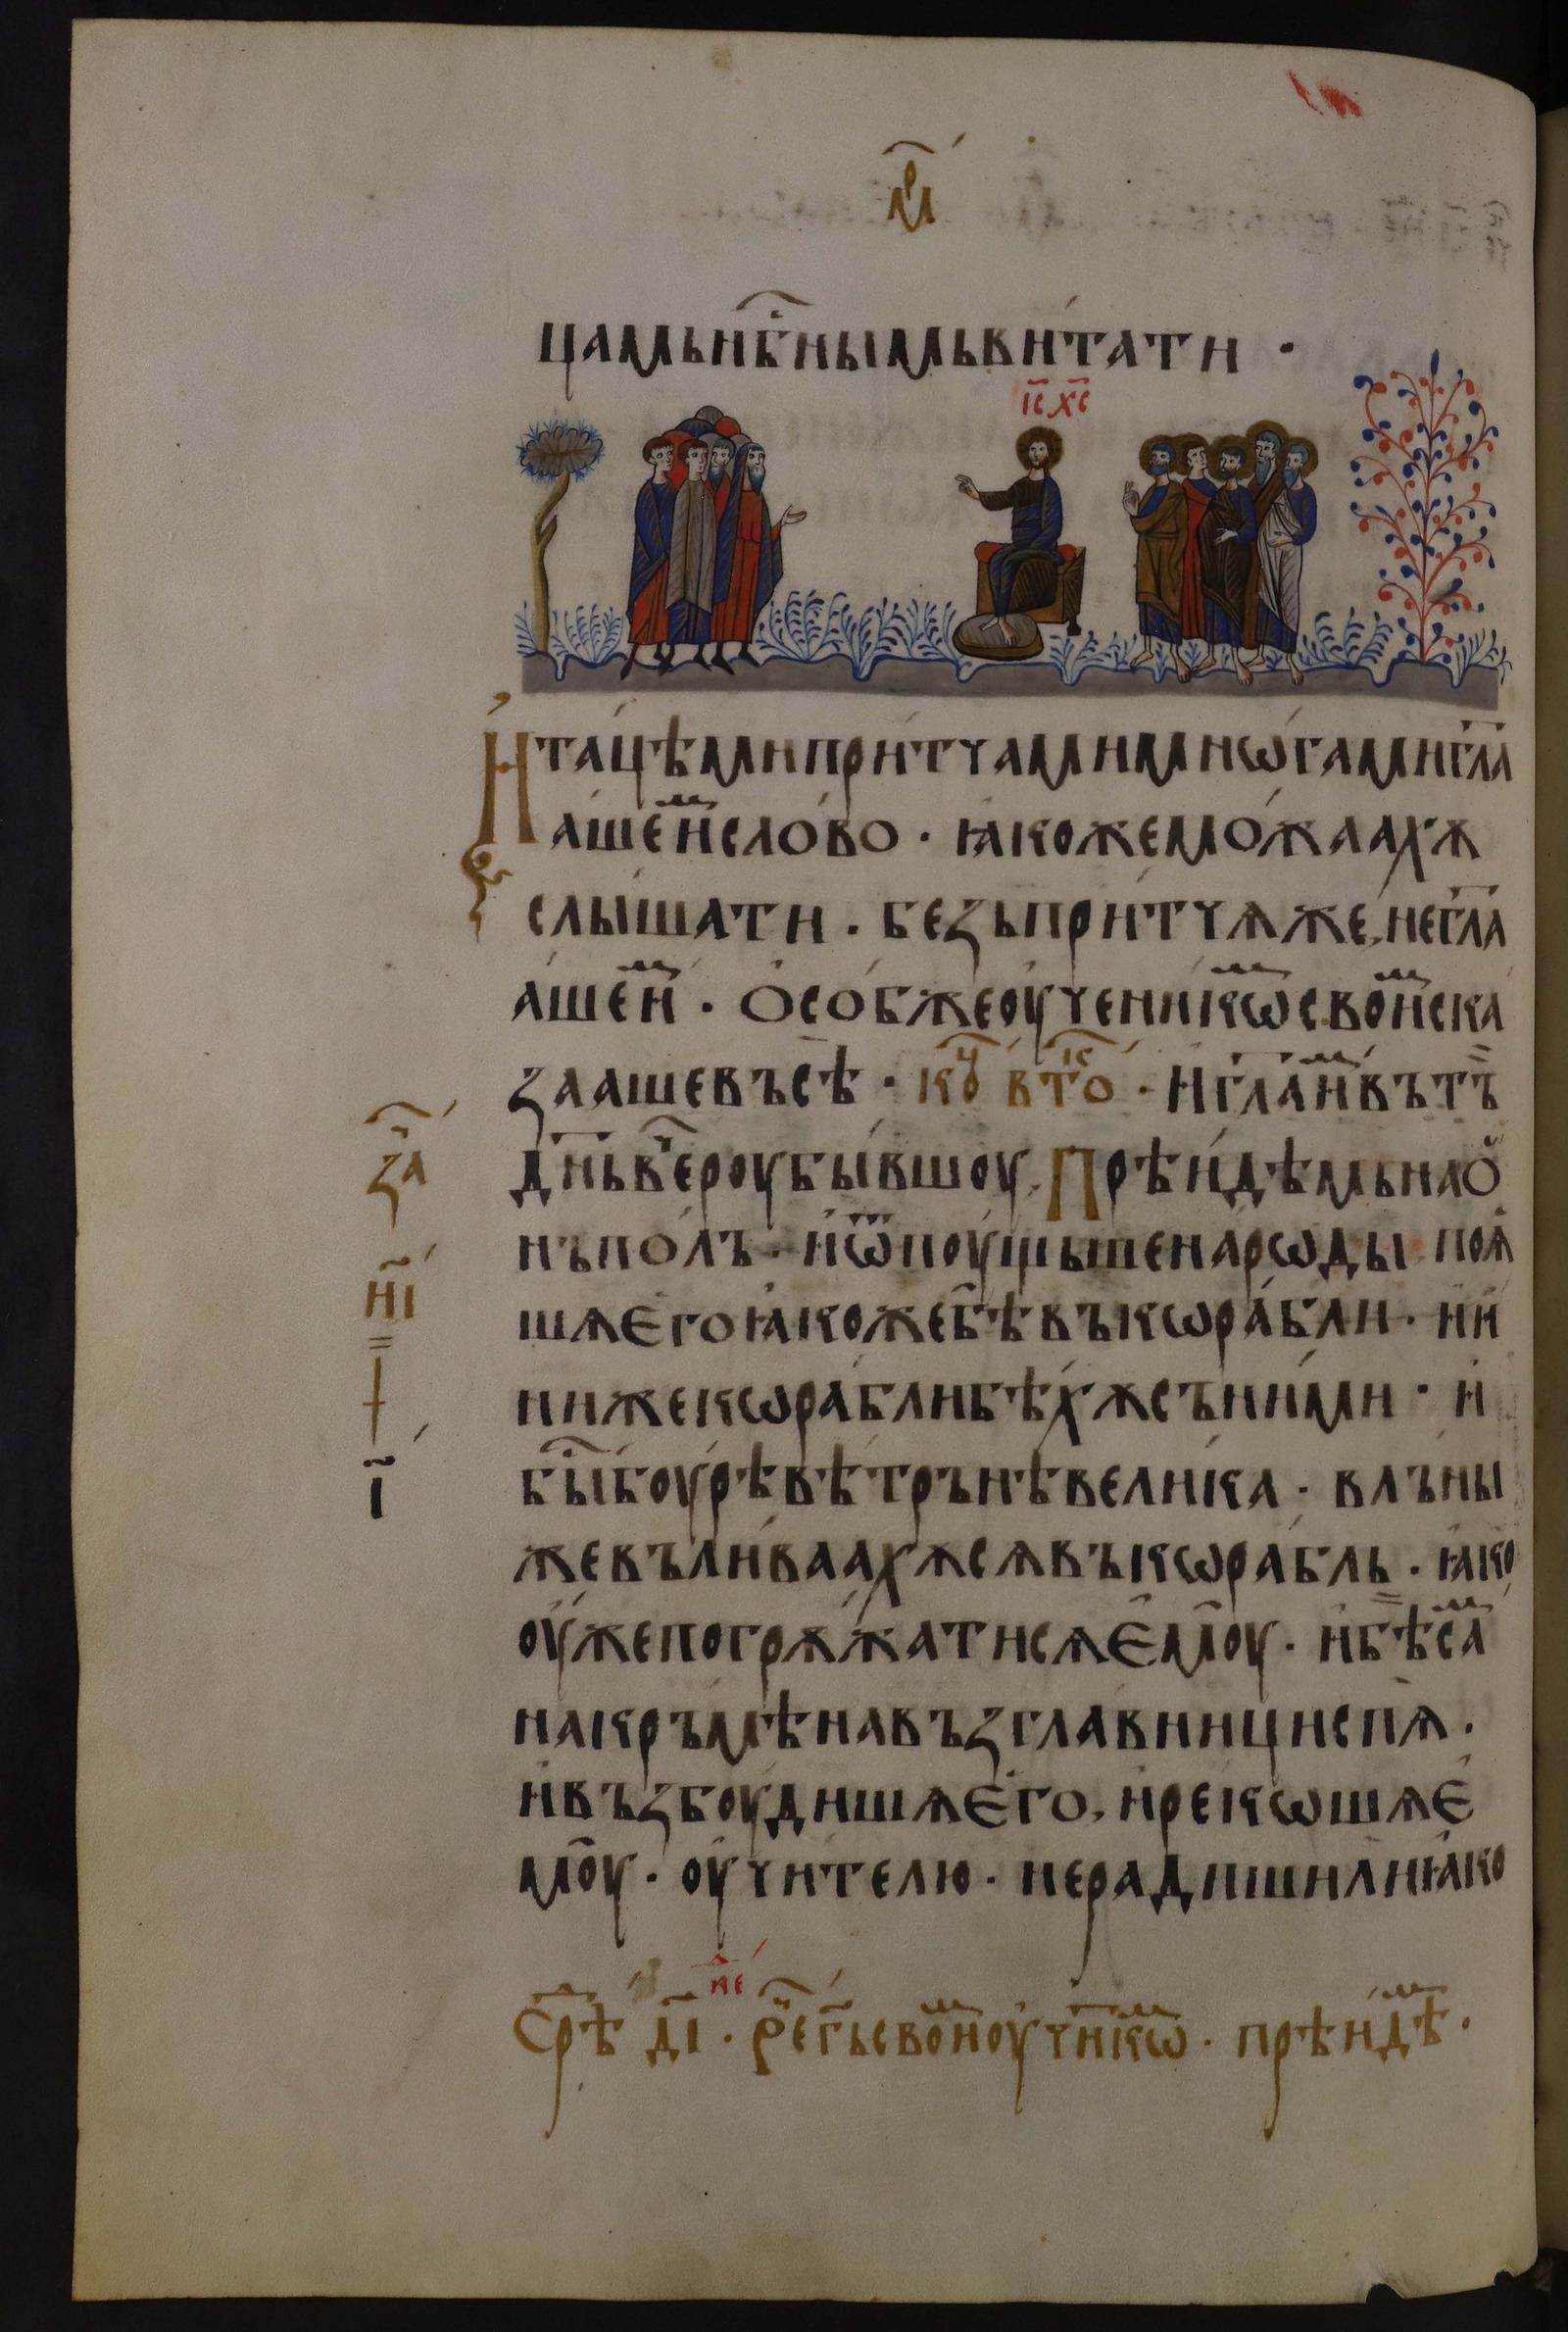 мр
цамьнбⷭ҇нымьвитати ·
і҃с х҃с
Итацѣмипритчамимнѡгамигл҃а
ашеимслово · ꙗкожеможаахѫ
слышати · безьпритчѧже, негл҃а
ашеим · Особжеоученикѡмсвоимска
заашевъсѣ · коц втоⷦ҇ · игл҃аимвътъ
дн҃ьвчероубывшоу. Прѣидѣмьнао
нъполъ · иѿпоущьшенарѡды поѧ
шѧегоꙗкожебѣвъкѡрабли · ии
нижекѡраблибѣхѫсъними · и
быⷭ҇боурѣвѣтрънѣвелика · влъны
жевъливаахѫсѧвъкѡрабль · ꙗко
оужепогрѫжатисѧемоу · ибѣсам
накръмѣнавъзглавницииспѧ ·
ивъзбоудишѧего, ирекѡшѧе
моу · оучителю · нерадишилиꙗко
за
н҃і
і҃
Срⷣѣ д҃і · рⷱ҇егь҃своимоучн҃кѡм · прѣидѣм ·
не